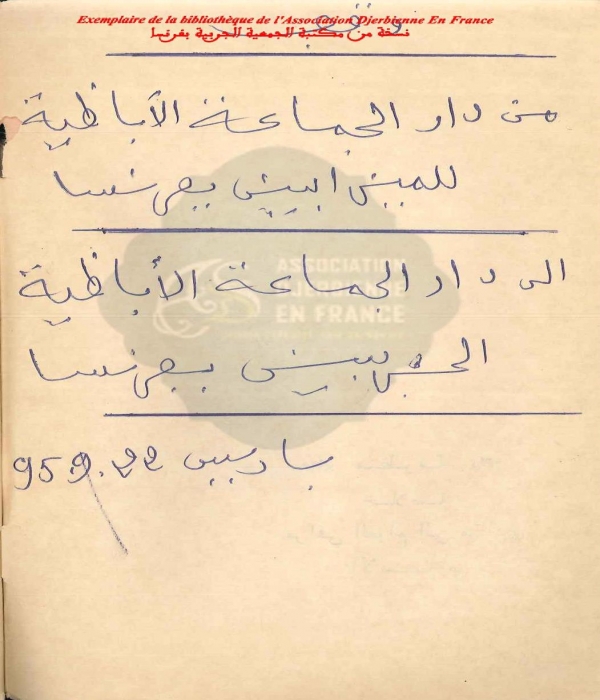 Exemplaire de la bibliothèque de l'Association Djerbienne En France
نسخة من مكتبة الجمعية الجربية بفرنسا
من دار الجماعة الأباظية
بفرنسا
ASSOCIATION
DJERBIENNE
EN FRANCE
الى دار الجماعة الأباظية
بفرنسا
باريس 22.9.95